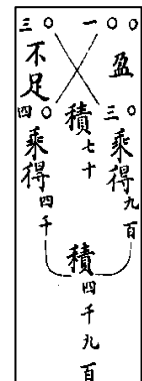 一○○
盈
三○
乘得九百
積七十
積四千九百
三○
不足
四○
乘得四千